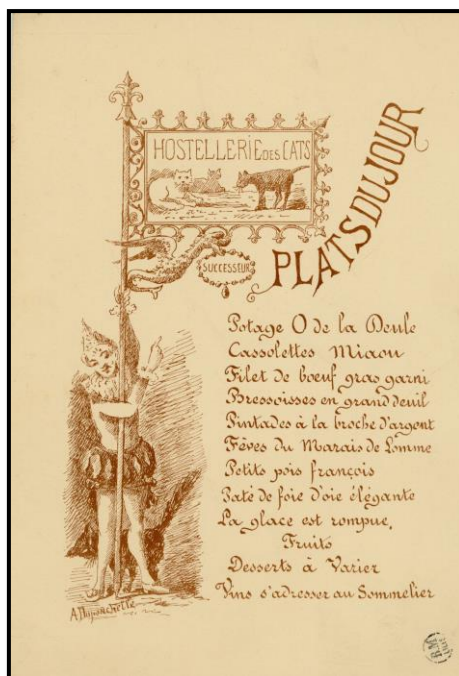 HOSTELLERIE DES CATS
SUCCESSEUR
PLATS DU JOUR
Potage O de la Deule
Cassolettes Miaou
Filet de bœuf gras garni
Bressoisses en grand deuil
Pintades à la broche d'argent
Fèves du Marais de Lomme
Petits pois françois
Paté de foie d'oie élégante
La glace est rompue.
Fruits
Desserts à Varier
Vins s'adresser au Sommelier